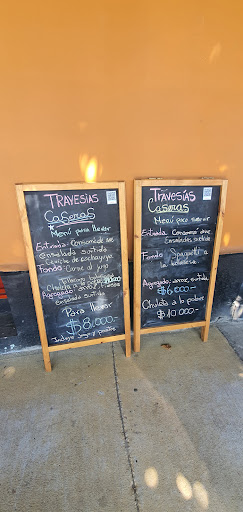 TRAVESIAS
CASERAS
Menú para llevar
Entrada: Consomé de ave
ensalada surtida
Ceviche de cochayuyo
Fondo: Carne al jugo
Agregado: arroz
ensalada surtida
Para llevar
$8.000.-
Incluye jugo y postre
TRAVESÍAS
CASERAS
Menú para servir
Entrada: Consomé ave
Ensaladas surtida
Fondo: Spaguetti a la
Agregado: arroz, surtida
$6.000.-
Chuleta a lo pobre
$10.000.-